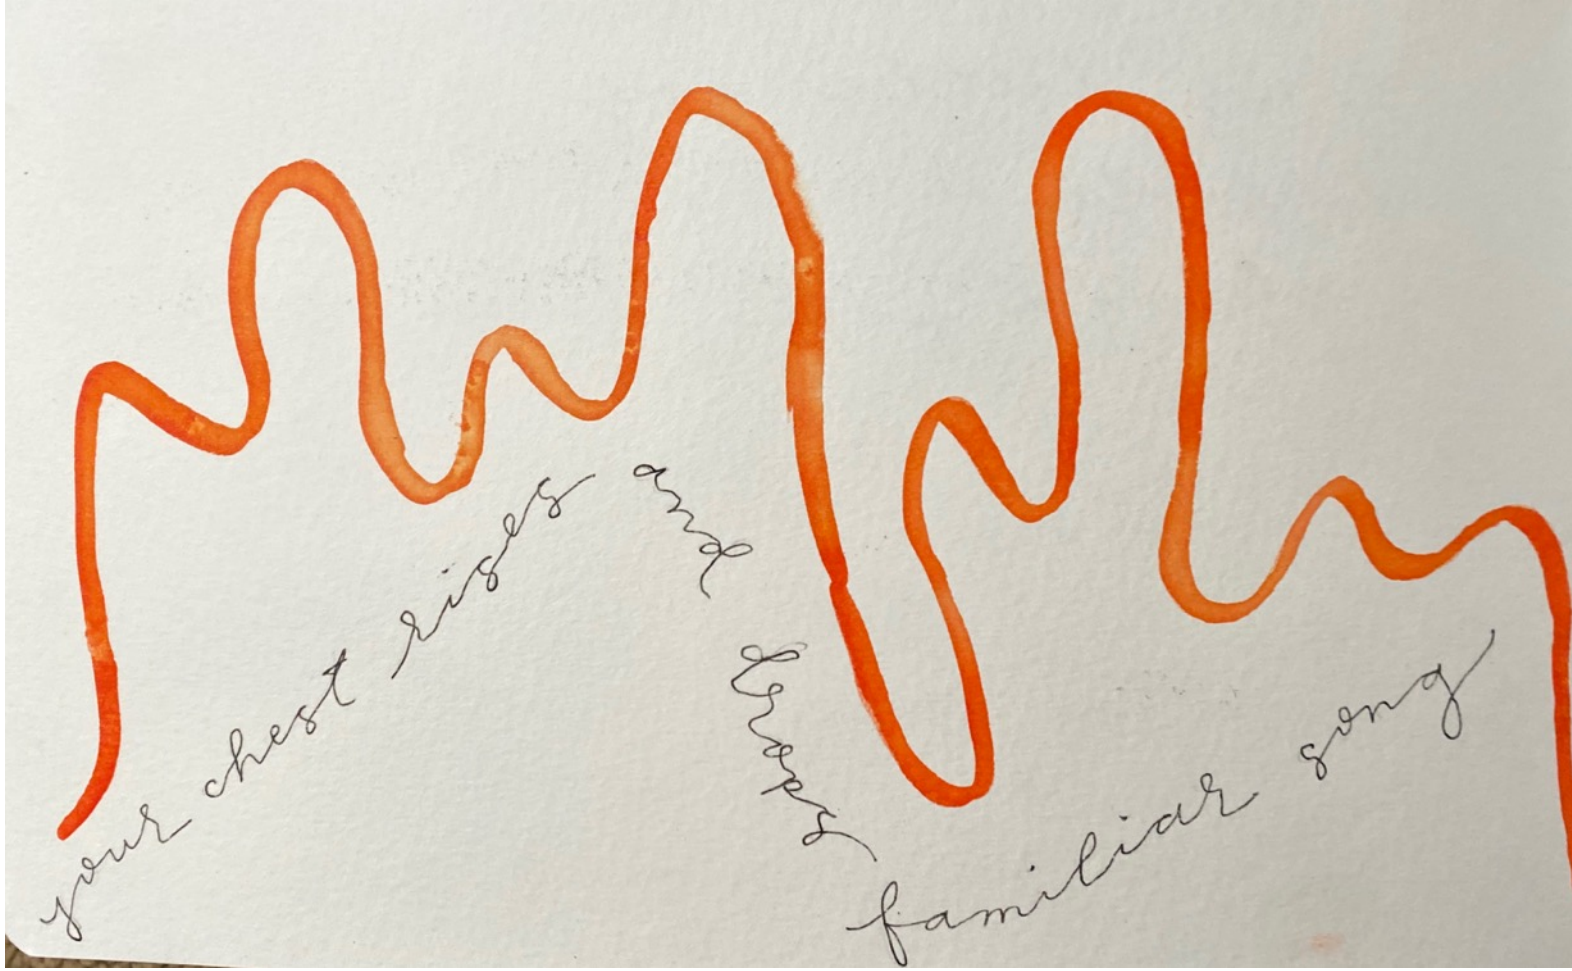 your chest rises and drops familiar song